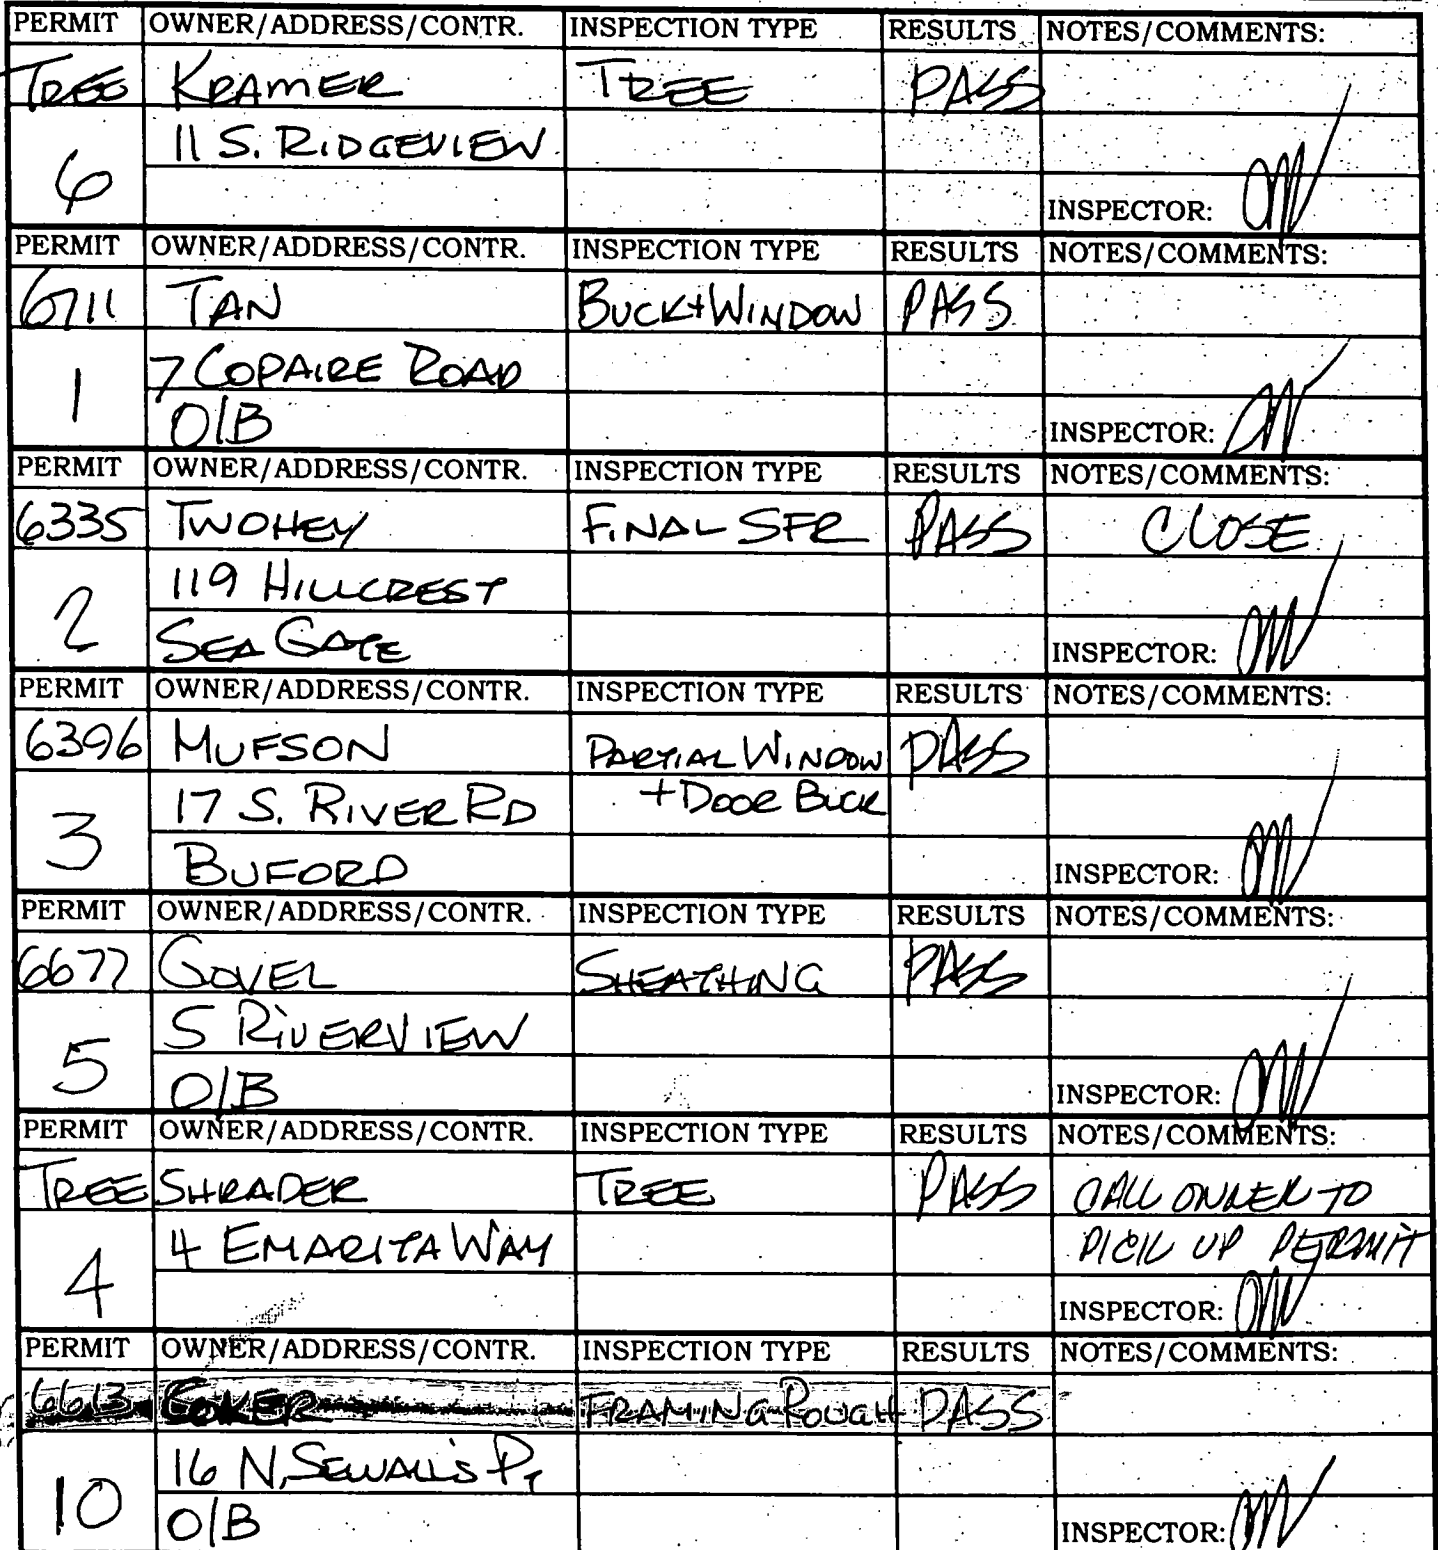 PERMIT OWNER/ADDRESS/CONTR. INSPECTION TYPE RESULTS NOTES/COMMENTS:
TREE KRAMER TREE PASS
11 S. RIDGEVIEW
6
INSPECTOR:
PERMIT OWNER/ADDRESS/CONTR. INSPECTION TYPE RESULTS NOTES/COMMENTS:
6711 TAN BUCK+WINDOW PASS
7 COPAIRE ROAD
1
O/B INSPECTOR:
PERMIT OWNER/ADDRESS/CONTR. INSPECTION TYPE RESULTS NOTES/COMMENTS:
6335 TWOHEY FINAL SFR PASS CLOSE
119 HILLCREST
2
SEA GATE INSPECTOR:
PERMIT OWNER/ADDRESS/CONTR. INSPECTION TYPE RESULTS NOTES/COMMENTS:
6396 MUFSON PARTIAL WINDOW PASS
17 S. RIVER RD + DOOR BUCK
3
BUFORD INSPECTOR:
PERMIT OWNER/ADDRESS/CONTR. INSPECTION TYPE RESULTS NOTES/COMMENTS:
6677 GOVEL SHEATHING PASS
5 RIVERVIEW
5
O/B INSPECTOR:
PERMIT OWNER/ADDRESS/CONTR. INSPECTION TYPE RESULTS NOTES/COMMENTS:
TREE SHRADER TREE PASS CALL OWNER TO
4 EMARITA WAY PICK UP PERMIT
4
INSPECTOR:
PERMIT OWNER/ADDRESS/CONTR. INSPECTION TYPE RESULTS NOTES/COMMENTS:
6613 COKER FRAMING ROUGH PASS
16 N. SEWALL'S PT
10
O/B INSPECTOR: